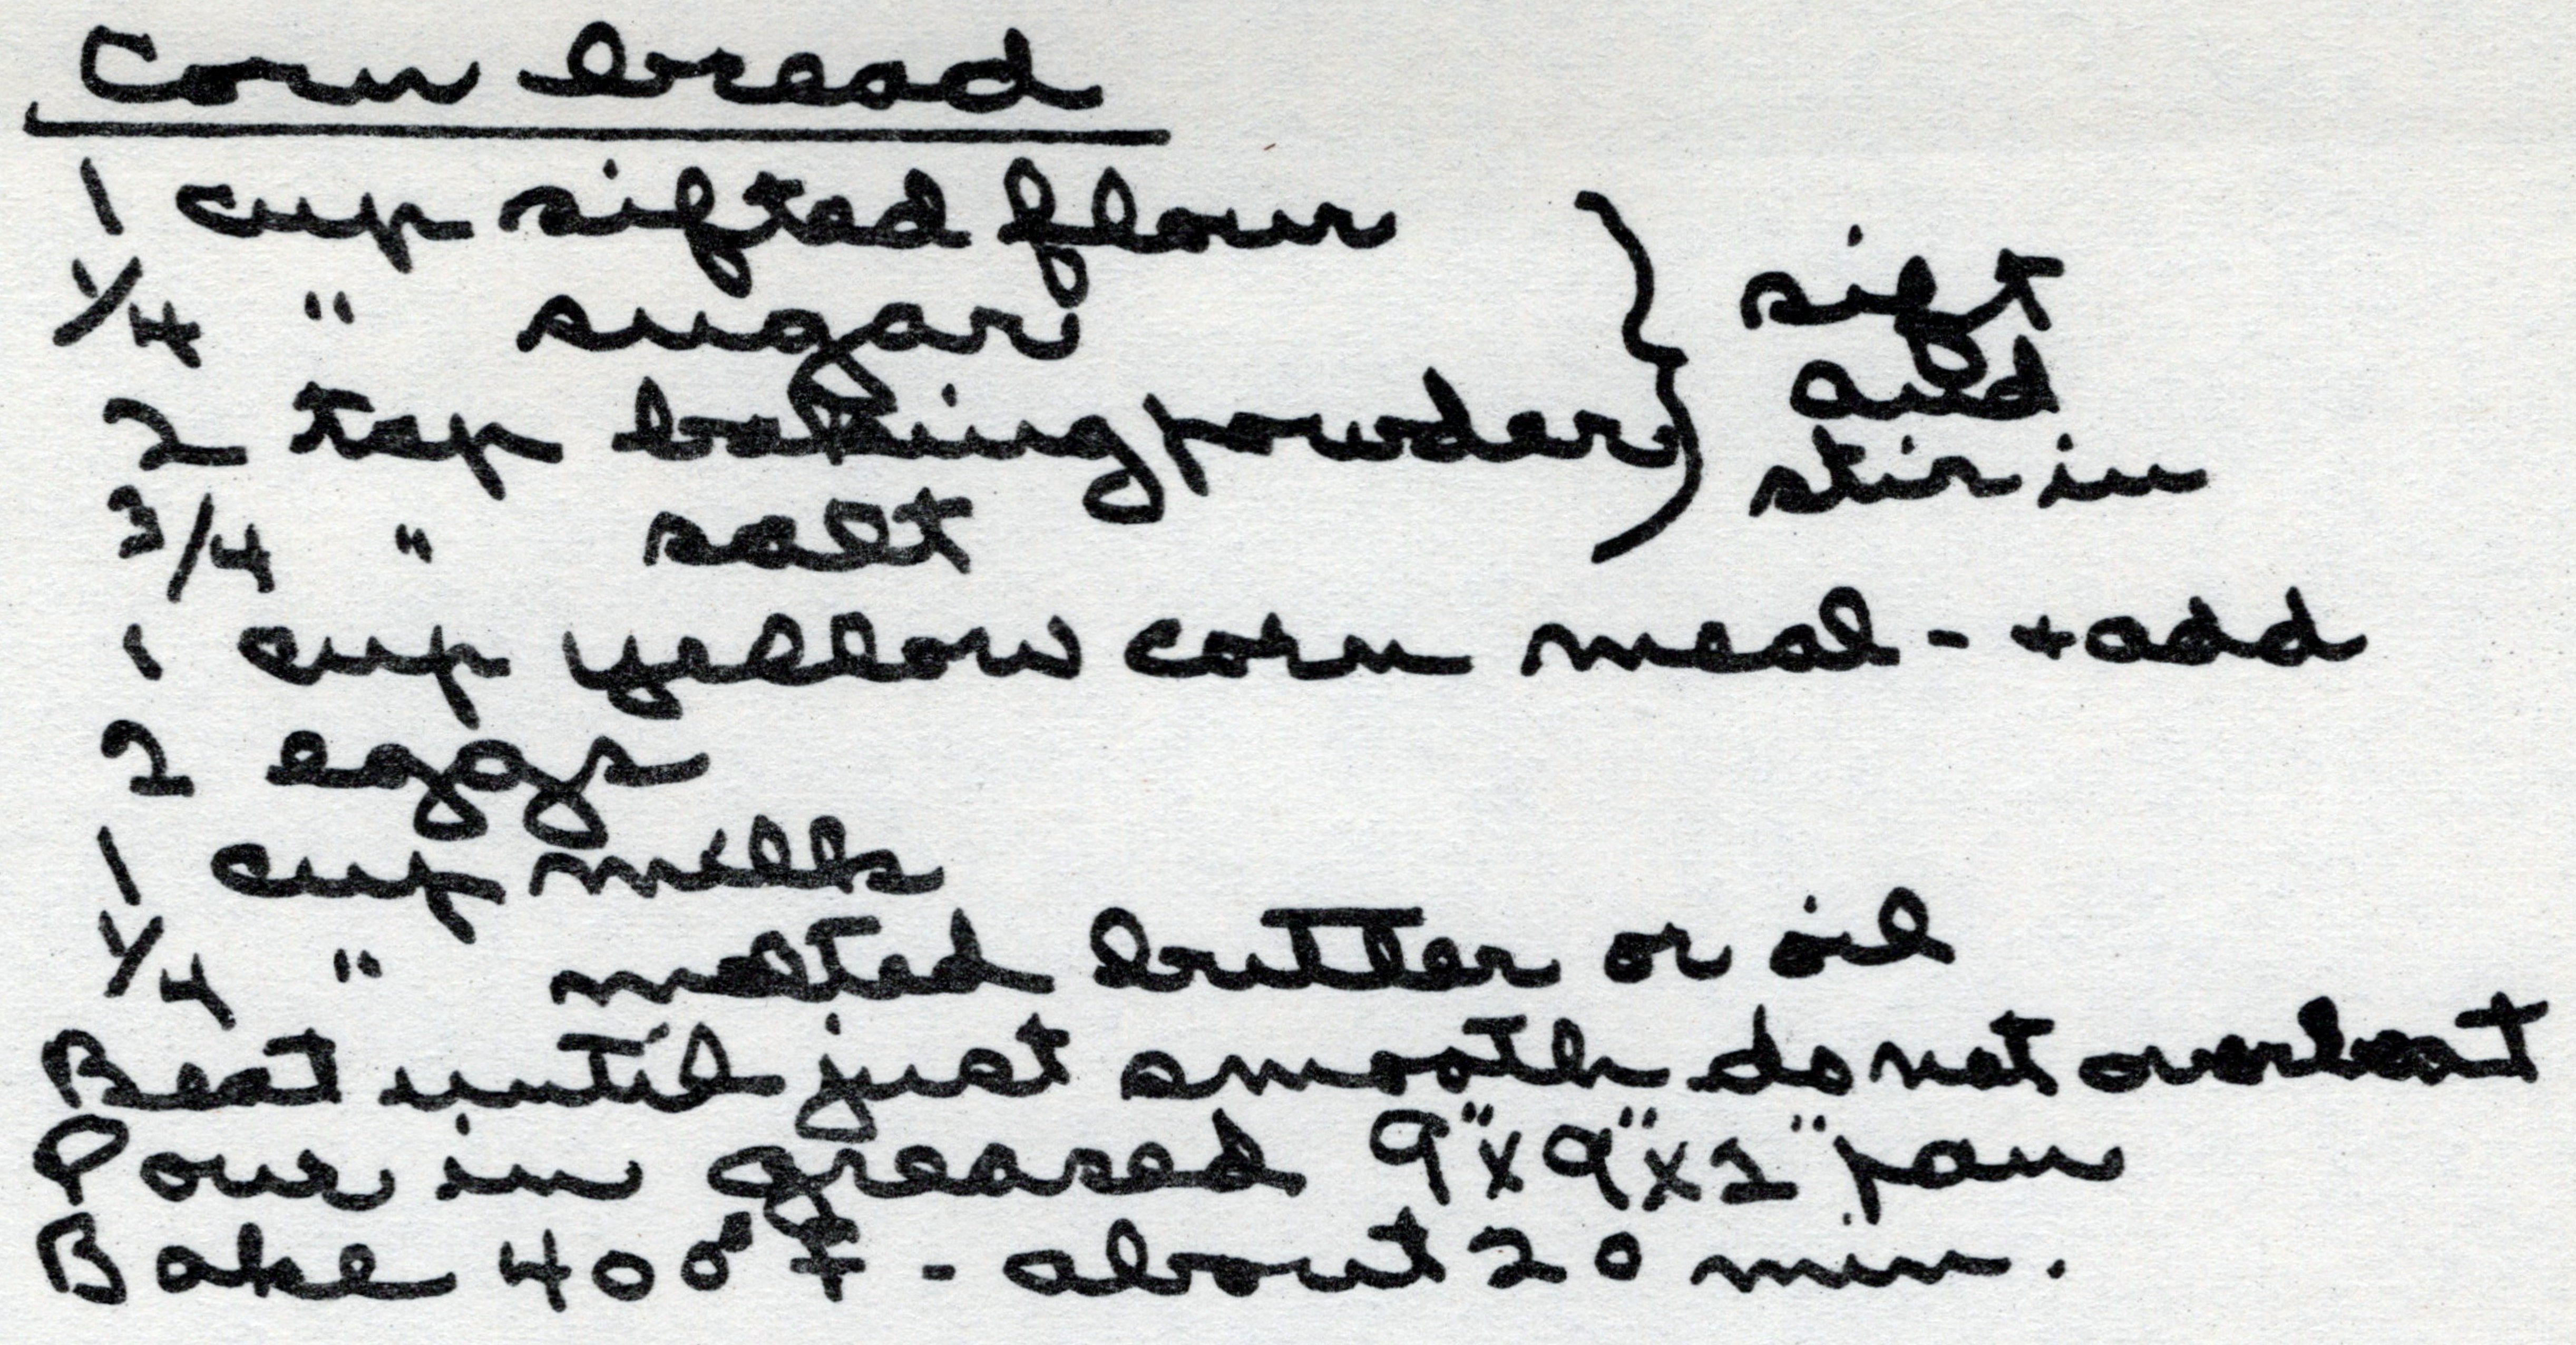 Corn bread
1 cup sifted flour
1/4 " sugar
2 tsp baking powder
3/4 " salt
} sift
and
stir in
1 cup yellow corn meal - + add
2 eggs
1 cup milk
1/4 " melted butter or oil
Beat until just smooth do not overbeat
Pour in greased 9"x9"x2" pan
Bake 400° F - about 20 min.